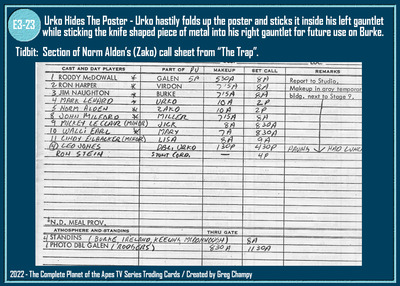 E3-23
Urko Hides The Poster - Urko hastily folds up the poster and sticks it inside his left gauntlet
while sticking the knife shaped piece of metal into his right gauntlet for future use on Burke.
Tidbit: Section of Norm Alden's (Zako) call sheet from "The Trap".
CAST AND DAY PLAYERS PART OF MAKEUP SET CALL REMARKS
1 RODDY McDOWALL GALEN 5A 530A 8A Report to Studio,
2 RON HARPER VIRDON 715A 8A Makeup in gray temporary
3 JIM NAUGHTON BURKE 715A 8A bldg. next to Stage 9.
4 MARK LENARD URKO 10A 2P
6 NORM ALDEN ZAKO 10A 2P
8 JOHN MILFORD MILLER 715A 8A
9 MICKEY LE CLAIR (MINOR) JICK 8A 830A
10 WALLI EARL MARY 7A 830A
11 CINDY EILBACKER (MINOR) LISA 8A 9A
LEO JONES DBL. URKO 130P 430P HAVING HAD LUNCH
RON STEIN STUNT CORD. — 4P
*N.D. MEAL PROV.
ATMOSPHERE AND STANDINS THRU GATE
4 STANDINS (BURKE, IRELAND, KEELING, McDONOUGH) 8A
1 PHOTO DBL GALEN (RODGERS) 830A 1130A
2022 - The Complete Planet of the Apes TV Series Trading Cards / Created by Greg Champy